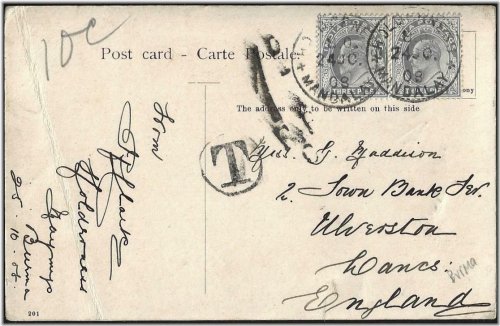 10c
Post card - Carte Postale.
24 OC.
08
MANDALAY
THREE PIES
24 OC.
08
MANDALAY
The address only to be written on this side
T
From
Holderness
Maymyo
Burma
25. 10. 08
G. Maddison
2. Town Bank Ter.
Ulverston
Lancs.
England
Burma
201